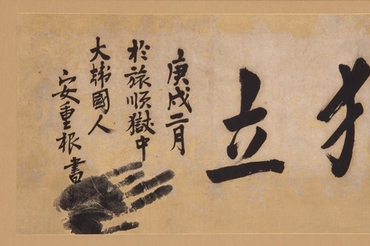 立
庚戌二月
於旅順獄中
大韓國人
安重根書